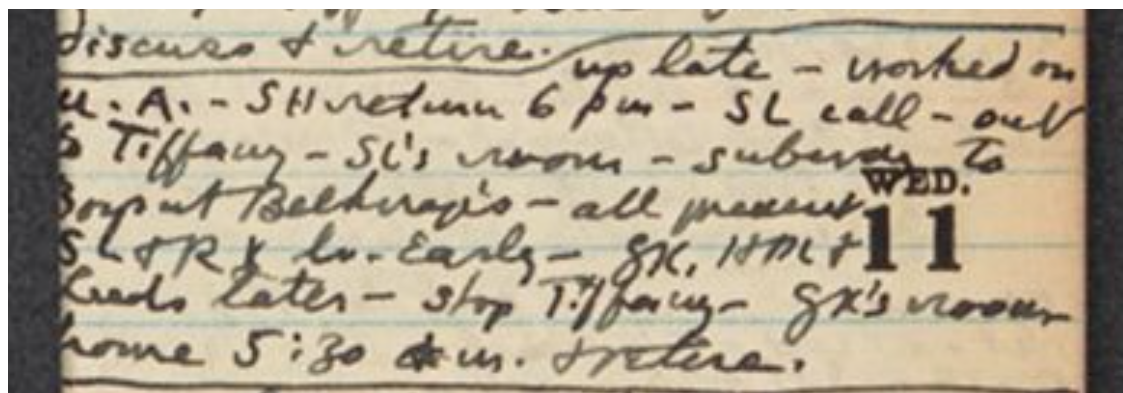 discuss & retire.
up late - worked on
U.A. - SH return 6 pm - SL call - out
to Tiffany - SL's room - subway to
WED.
at Belknap's - all present
11
SL & R & lv. Early - GK, HM &
later - stop Tiffany - GK's room
home 5:30 a.m. & retire.